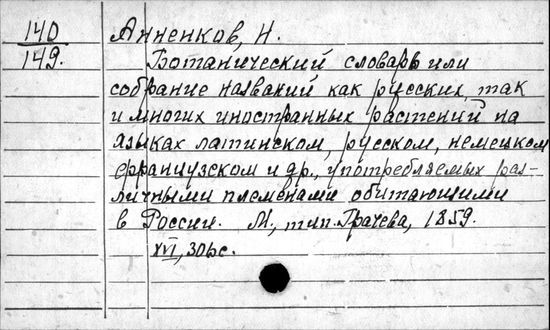 140
149.
Анненков, Н.
Ботанический словарь или
собрание названий как русских, так
и многих иностранных растений на
языках латинском, русском, немецком
французском и др., употребляемых раз-
личными племенами обитающими
в России. М., тип. Грачева, 1859.
XVI, 306с.